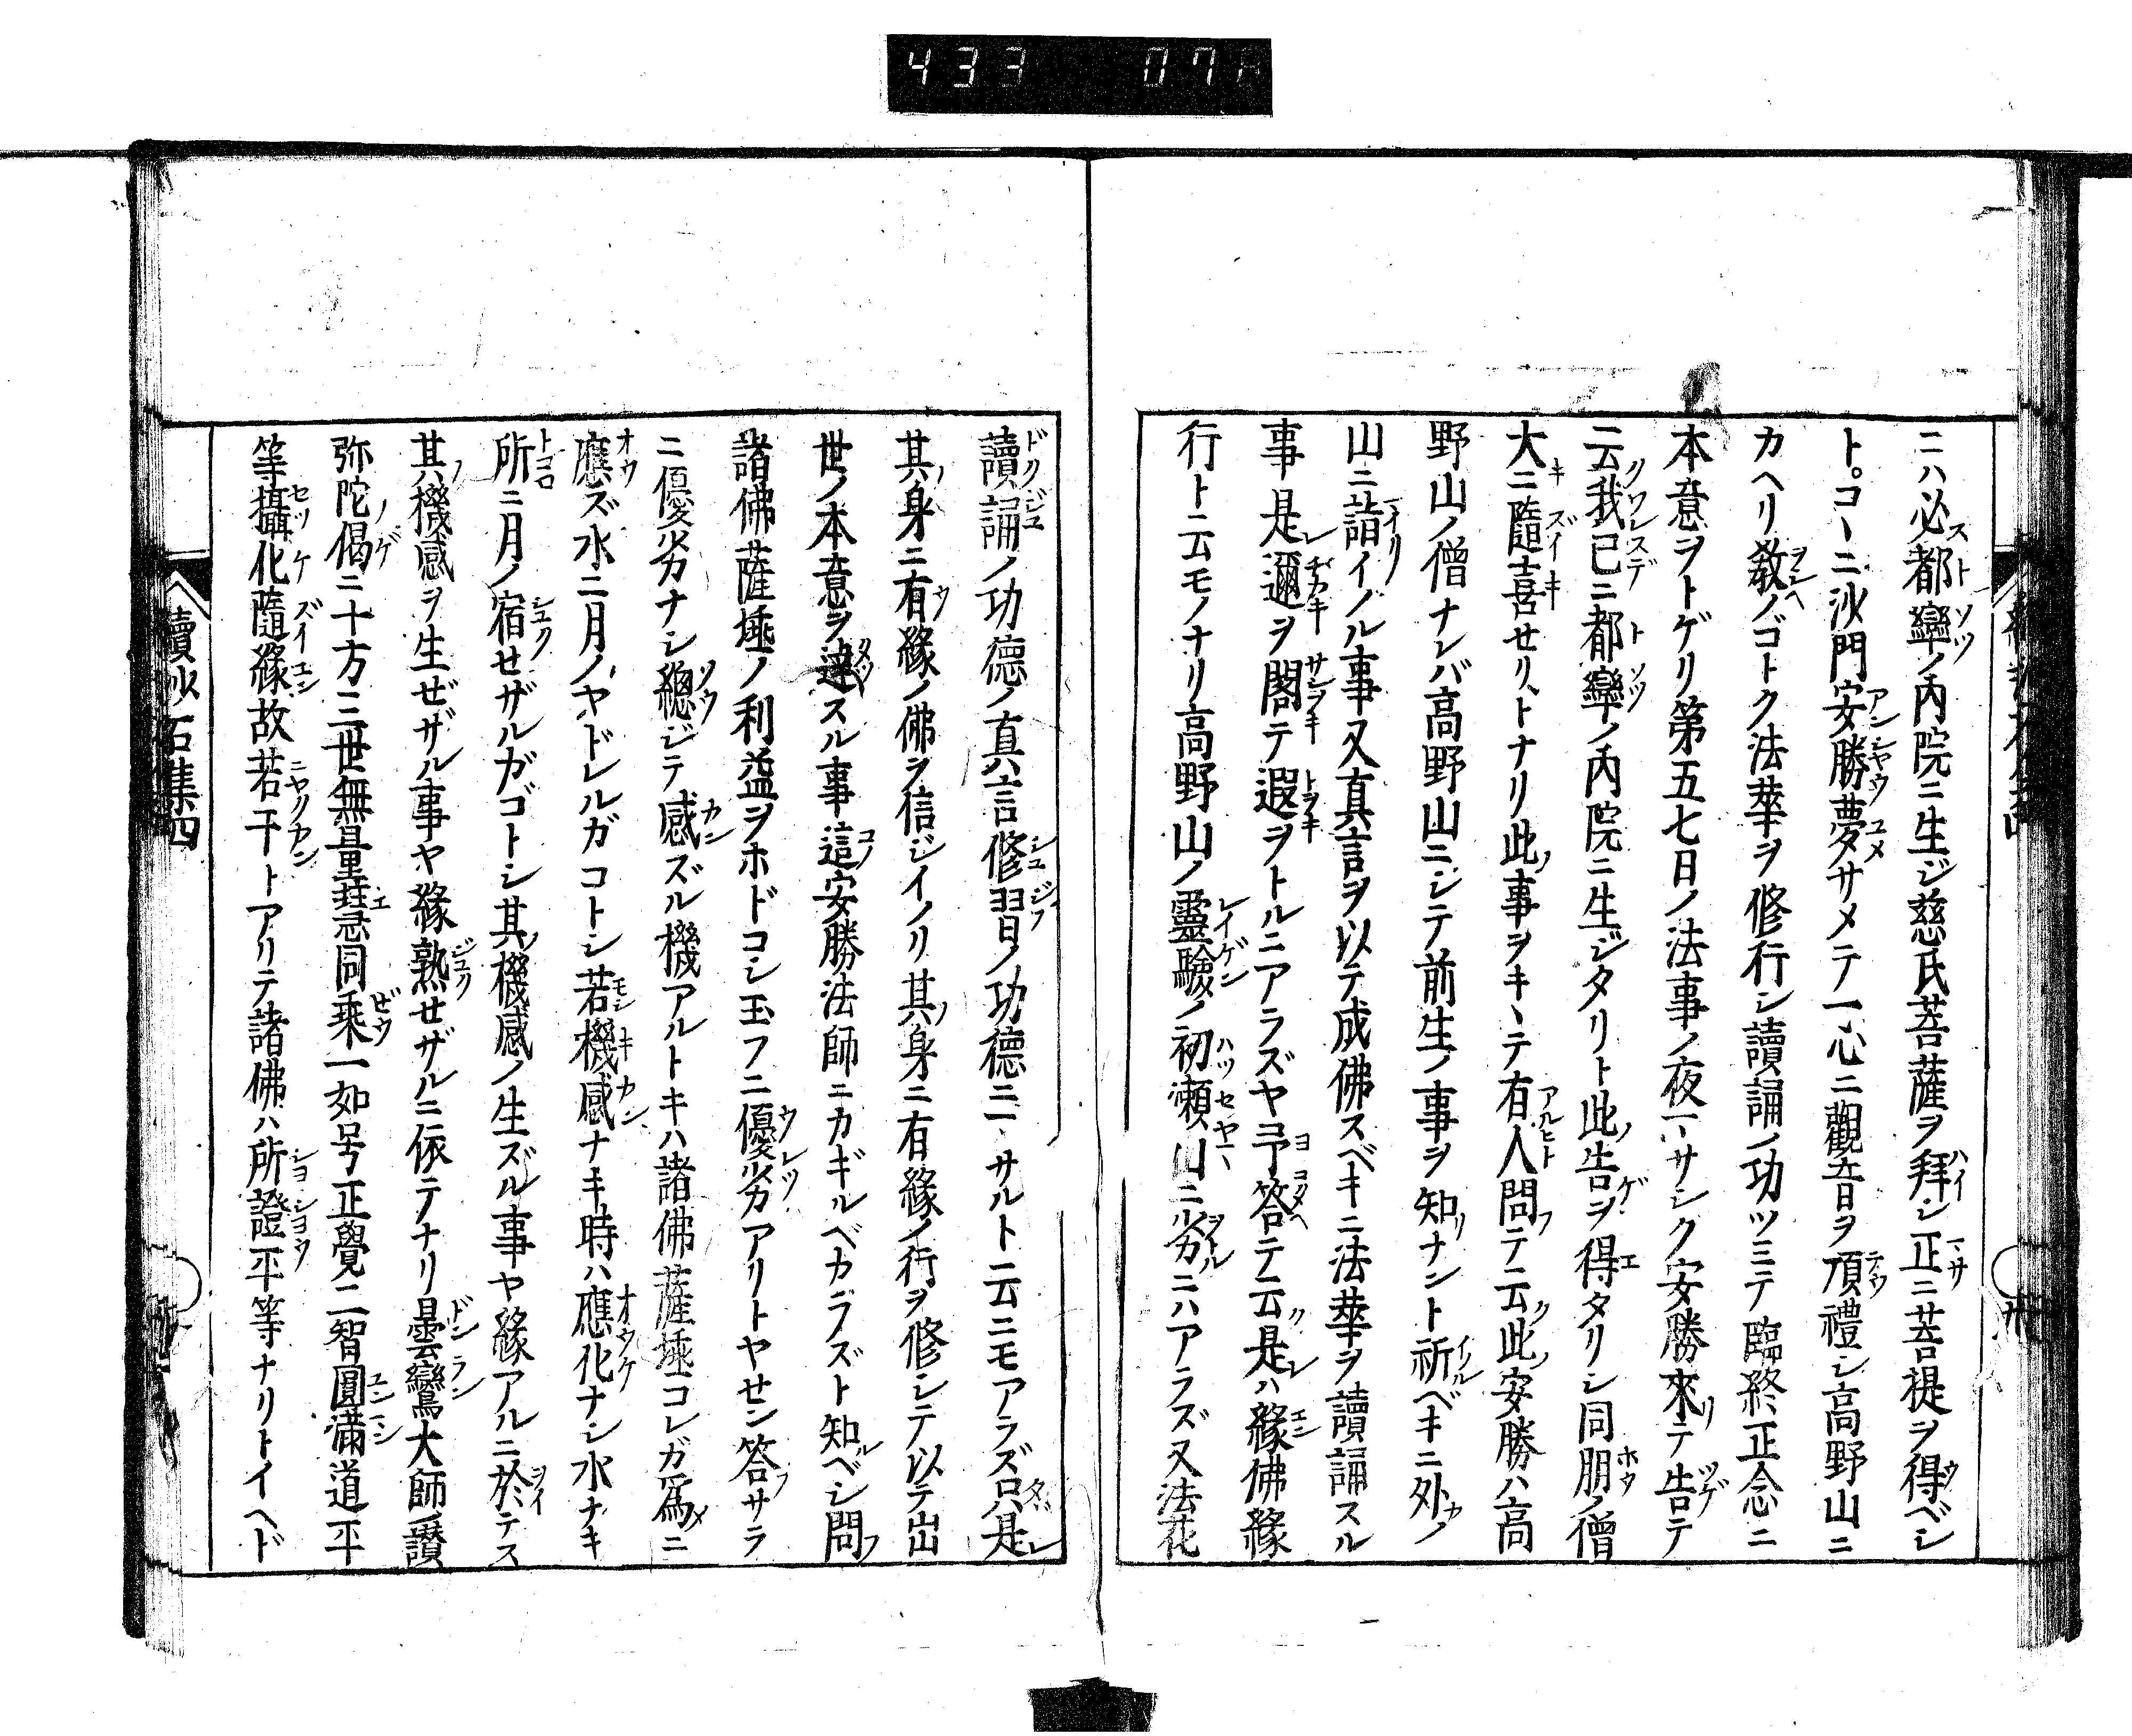 433 07A
ニハ必都率ノ内院ニ生ジ慈氏菩薩ヲ拜シ正ニ菩提ヲ得ベシ
ト。コヽニ沙門安勝夢サメテ一心ニ觀音ヲ頂禮シ高野山ニ
カヘリ教ノゴトク法華ヲ修行シ讀誦ノ功ツミテ臨終正念ニ
本意ヲトゲリ第五七日ノ法事ノ夜マサシク安勝來テ告テ
云我已ニ都率ノ内院ニ生ジタリト此告ヲ得タリシ同朋ノ僧
大ニ隨喜セリトナリ此事ヲキヽテ有人問テ云此安勝ハ高
野山ノ僧ナレバ高野山ニシテ前生ノ事ヲ知ナント祈ベキニ外ノ
山ニ詣イノル事又真言ヲ以テ成佛スベキニ法華ヲ讀誦スル
事是邇ヲ閣テ遐ヲトルニアラズヤ予答テ云是ハ緣佛緣
行ト云モノナリ高野山ノ靈驗ノ初瀬山ニ劣ニハアラズ又法花
讀誦ノ功德ノ真言修習ノ功德ニマサルト云ニモアラズ只是
其身ニ有緣ノ佛ヲ信ジイノリ其身ニ有緣ノ行ヲ修シテ以テ出
世ノ本意ヲ達スル事這安勝法師ニカギルベカラズト知ベシ問
諸佛薩埵ノ利益ヲホドコシ玉フニ優劣アリトヤセン答サラ
ニ優劣ナシ總ジテ感ズル機アルトキハ諸佛薩埵コレガ爲ニ
應ズ水ニ月ノヤドレルガコトシ若機感ナキ時ハ應化ナシ水ナキ
所ニ月ノ宿セザルガゴトシ其機感ノ生ズル事ヤ緣アルニ於テス
其機感ヲ生ゼザル事ヤ緣熟セザルニ依テナリ曇鸞大師ノ讃
弥陀偈ニ十方三世無量慧同乘一如号正覺二智圓滿道平
等攝化隨緣故若干トアリテ諸佛ハ所證平等ナリトイヘド
續沙石集四